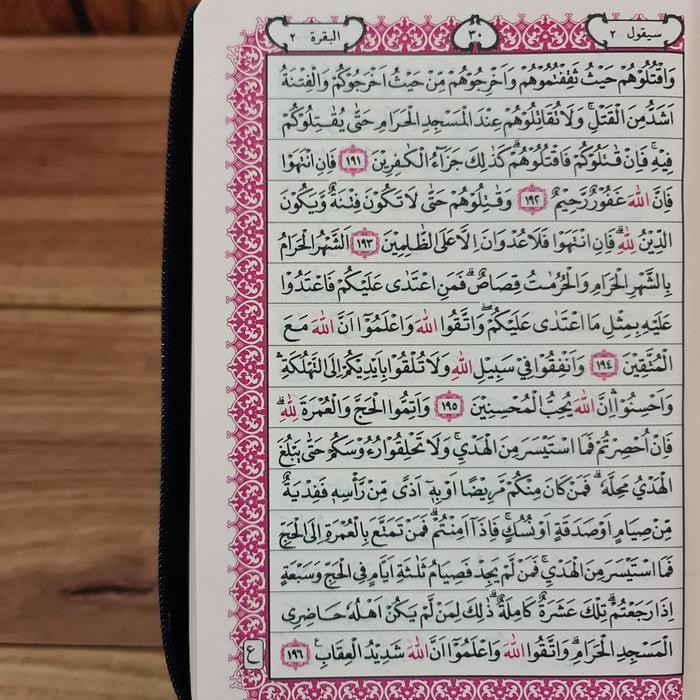 سيقول ٢
٣٠
البقرة ٢
وَاقْتُلُوْهُمْ حَيْثُ ثَقِفْتُمُوْهُمْ وَاَخْرِجُوْهُمْ مِّنْ حَيْثُ اَخْرَجُوْكُمْ وَالْفِتْنَةُ
اَشَدُّ مِنَ الْقَتْلِ ۚ وَلَا تُقَاتِلُوْهُمْ عِنْدَ الْمَسْجِدِ الْحَرَامِ حَتّٰى يُقٰتِلُوْكُمْ
فِيْهِ ۚ فَاِنْ قٰتَلُوْكُمْ فَاقْتُلُوْهُمْ ۗ كَذٰلِكَ جَزَاۤءُ الْكٰفِرِيْنَ ١٩١ فَاِنِ انْتَهَوْا
فَاِنَّ اللّٰهَ غَفُوْرٌ رَّحِيْمٌ ١٩٢ وَقٰتِلُوْهُمْ حَتّٰى لَا تَكُوْنَ فِتْنَةٌ وَّيَكُوْنَ
الدِّيْنُ لِلّٰهِ ۗ فَاِنِ انْتَهَوْا فَلَا عُدْوَانَ اِلَّا عَلَى الظّٰلِمِيْنَ ١٩٣ اَلشَّهْرُ الْحَرَامُ
بِالشَّهْرِ الْحَرَامِ وَالْحُرُمٰتُ قِصَاصٌ ۗ فَمَنِ اعْتَدٰى عَلَيْكُمْ فَاعْتَدُوْا
عَلَيْهِ بِمِثْلِ مَا اعْتَدٰى عَلَيْكُمْ ۖ وَاتَّقُوا اللّٰهَ وَاعْلَمُوْٓا اَنَّ اللّٰهَ مَعَ
الْمُتَّقِيْنَ ١٩٤ وَاَنْفِقُوْا فِيْ سَبِيْلِ اللّٰهِ وَلَا تُلْقُوْا بِاَيْدِيْكُمْ اِلَى التَّهْلُكَةِ ۛ
وَاَحْسِنُوْا ۛ اِنَّ اللّٰهَ يُحِبُّ الْمُحْسِنِيْنَ ١٩٥ وَاَتِمُّوا الْحَجَّ وَالْعُمْرَةَ لِلّٰهِ ۗ
فَاِنْ اُحْصِرْتُمْ فَمَا اسْتَيْسَرَ مِنَ الْهَدْيِ ۚ وَلَا تَحْلِقُوْا رُءُوْسَكُمْ حَتّٰى يَبْلُغَ
الْهَدْيُ مَحِلَّهٗ ۗ فَمَنْ كَانَ مِنْكُمْ مَّرِيْضًا اَوْ بِهٖٓ اَذًى مِّنْ رَّأْسِهٖ فَفِدْيَةٌ
مِّنْ صِيَامٍ اَوْ صَدَقَةٍ اَوْ نُسُكٍ ۚ فَاِذَآ اَمِنْتُمْ ۗ فَمَنْ تَمَتَّعَ بِالْعُمْرَةِ اِلَى الْحَجِّ
فَمَا اسْتَيْسَرَ مِنَ الْهَدْيِ ۚ فَمَنْ لَّمْ يَجِدْ فَصِيَامُ ثَلٰثَةِ اَيَّامٍ فِى الْحَجِّ وَسَبْعَةٍ
اِذَا رَجَعْتُمْ ۗ تِلْكَ عَشَرَةٌ كَامِلَةٌ ۗ ذٰلِكَ لِمَنْ لَّمْ يَكُنْ اَهْلُهٗ حَاضِرِى
الْمَسْجِدِ الْحَرَامِ ۗ وَاتَّقُوا اللّٰهَ وَاعْلَمُوْٓا اَنَّ اللّٰهَ شَدِيْدُ الْعِقَابِ ࣖ ١٩٦
ع